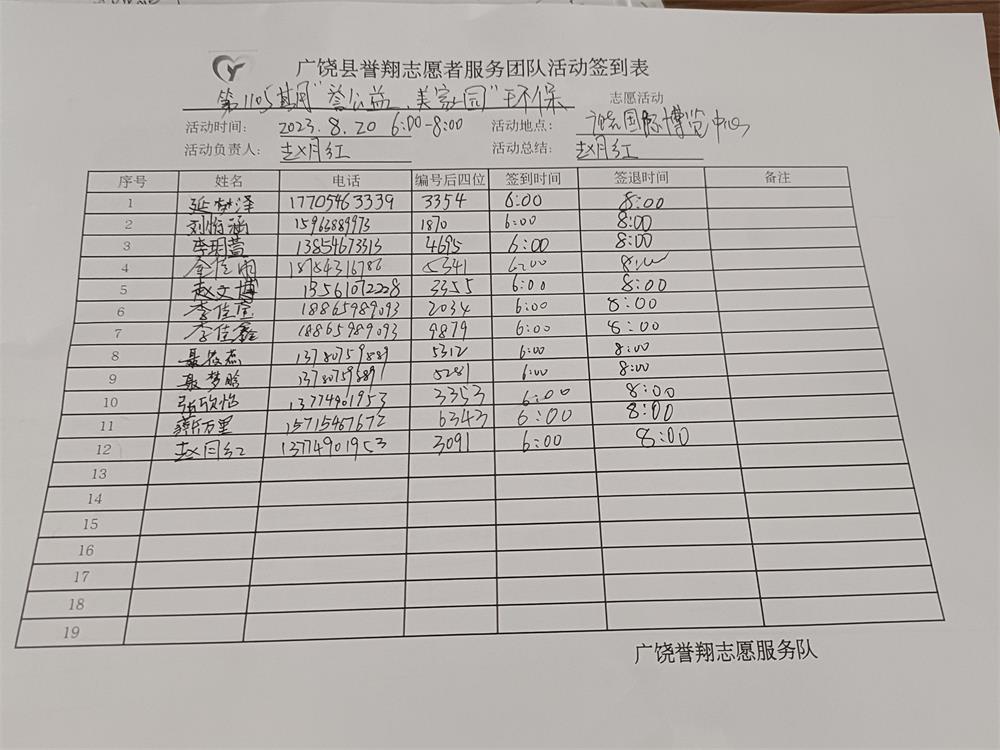 广饶县誉翔志愿者服务团队活动签到表
第1105期"誉公益、美家园"环保 志愿活动
活动时间: 2023.8.20 6:00-8:00 活动地点: 国际博览中心
活动负责人: 赵月红 活动总结: 赵月红
序号 姓名 电话 编号后四位 签到时间 签退时间 备注
1 延梦泽 17705463339 3354 6:00 8:00
2 刘怡涵 15963889973 1870 6:00 8:00
3 李玥萱 13854673313 4695 6:00 8:00
4 5341 6:00 8:00
5 赵文博 13561072228 3355 6:00 8:00
6 李佳宣 18865989093 2034 6:00 8:00
7 李佳鑫 18865989093 9879 6:00 8:00
8 13780759889 5312 6:00 8:00
9 聂梦晗 5281 6:00 8:00
10 张欣怡 13774901953 3353 6:00 8:00
11 万里 15715467672 6343 6:00 8:00
12 赵月红 13774901953 3091 6:00 8:00
13
14
15
16
17
18
19
广饶誉翔志愿服务队